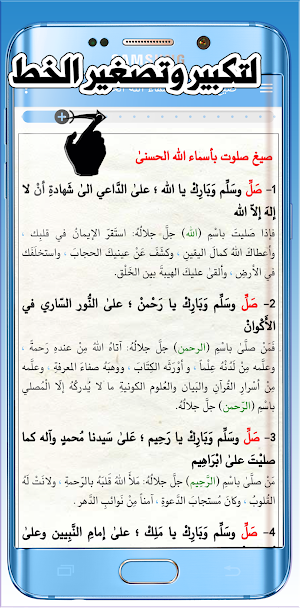 لتكبير وتصغير الخط
صيغ صلوت بأسماء الله الحسنىٰ
1- صَلِّ وسَلِّم وَبَارِكْ يا الله ؛ علىٰ الدَّاعي الىٰ شَهادةِ أنْ لا
إلهَ إلاّ الله
فإذا صَليتَ باسْمِ (الله) جلَّ جلالُهُ: استَقرّ الإيمانُ في قلبِك ،
وأعطاكَ اللهُ كمالَ اليقينِ ، وكشَّفَ عَنْ عينيكَ الحجابَ ، واستخلَفَك
في الأرضِ ، وألقىٰ عليكَ الهيبةَ بين الخَلْق.
2- صَلِّ وسَلِّم وَبَارِكْ يا رَحْمٰنْ ؛ علىٰ النُّور السّاري في
الأَكْوانْ
فَمَنْ صلَّىٰ بِاسْمِ (الرحمن) جلَّ جلالُهُ: آتاهُ اللهُ مِنْ عندِهِ رحمةً ،
وعلَّمه مِنْ لَدُنْهُ عِلْماً ، وأوْرَثَه الكِتَابَ ، ووهبَهُ صفاءَ المعرفةِ ، وعلَّمه
مِنْ أسْرارِ القُرآنِ والبَيانِ والعُلومِ الكونيةِ ما لا يُدركُهُ إلّا الْمُصلي
باسْمِ (الرّحمن) جلَّ جلالُهُ.
3- صَلِّ وسَلِّم وَبَارِكْ يا رَحِيم ؛ عَلىٰ سَيدنا مُحمدٍ وآله كما
صليْتَ علىٰ ابْراهِيم
مَنْ صلَّىٰ باسْمِ (الرَّحِيم) جلَّ جلالُهُ: مَلأَ اللهُ قَلبَهُ بالرحمةِ ، ولانَتْ لَهُ
القُلوبُ ، وكانَ مُستجابَ الدَّعوةِ ، آمناً مِنْ نَوائبِ الدَّهر .
4- صَلِّ وسَلِّم وَبَارِكْ يا مَلِكْ ؛ علىٰ إمامِ النَّبِيين وعلىٰ